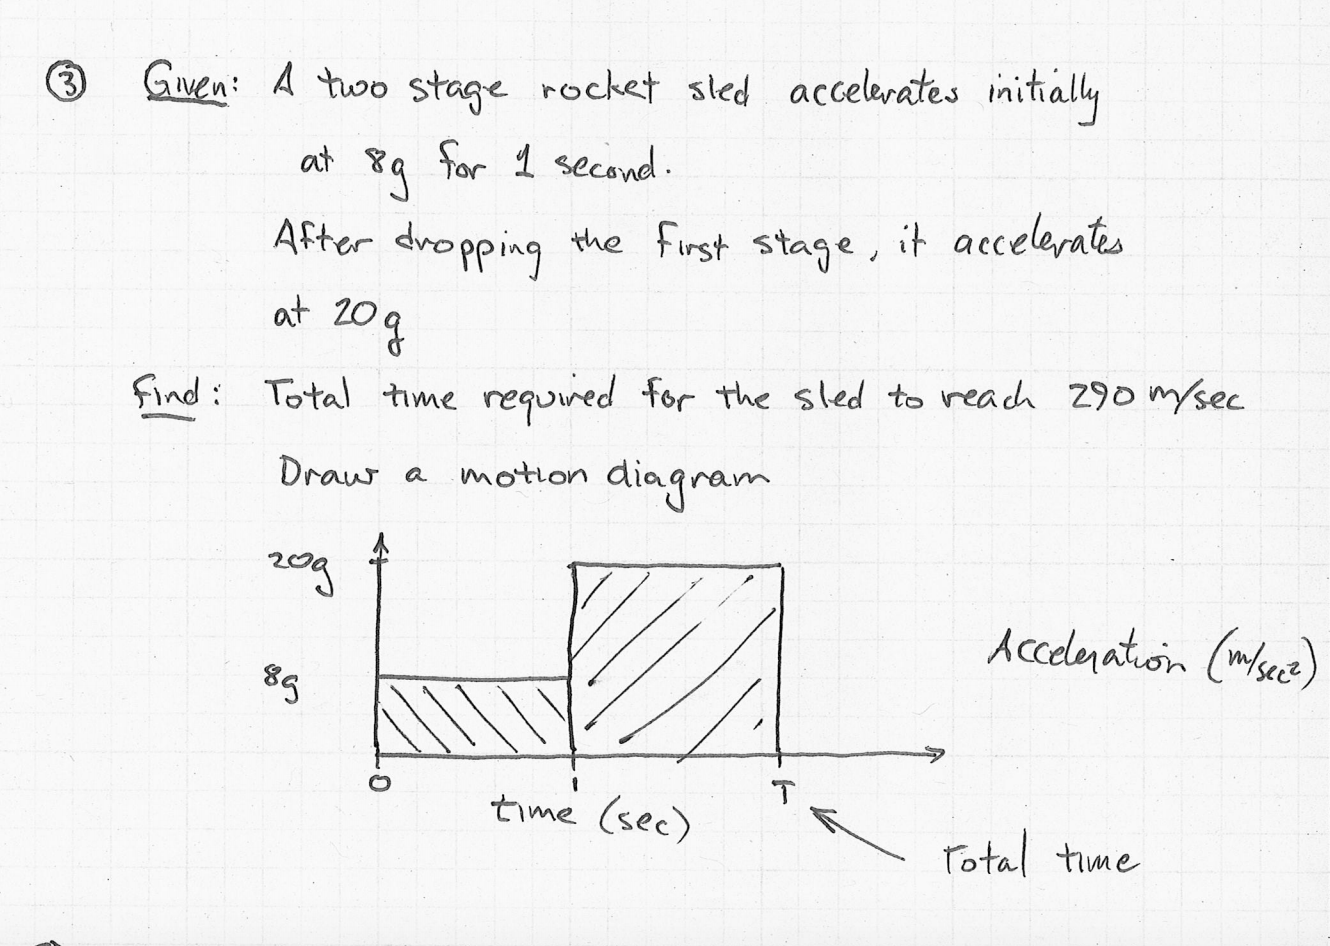 ③ Given: A two stage rocket sled accelerates initially
at 8g for 1 second.
After dropping the first stage, it accelerates
at 20g
Find: Total time required for the sled to reach 290 m/sec
Draw a motion diagram
20g
8g
Acceleration (m/sec²)
0 1 T
time (sec)
Total time